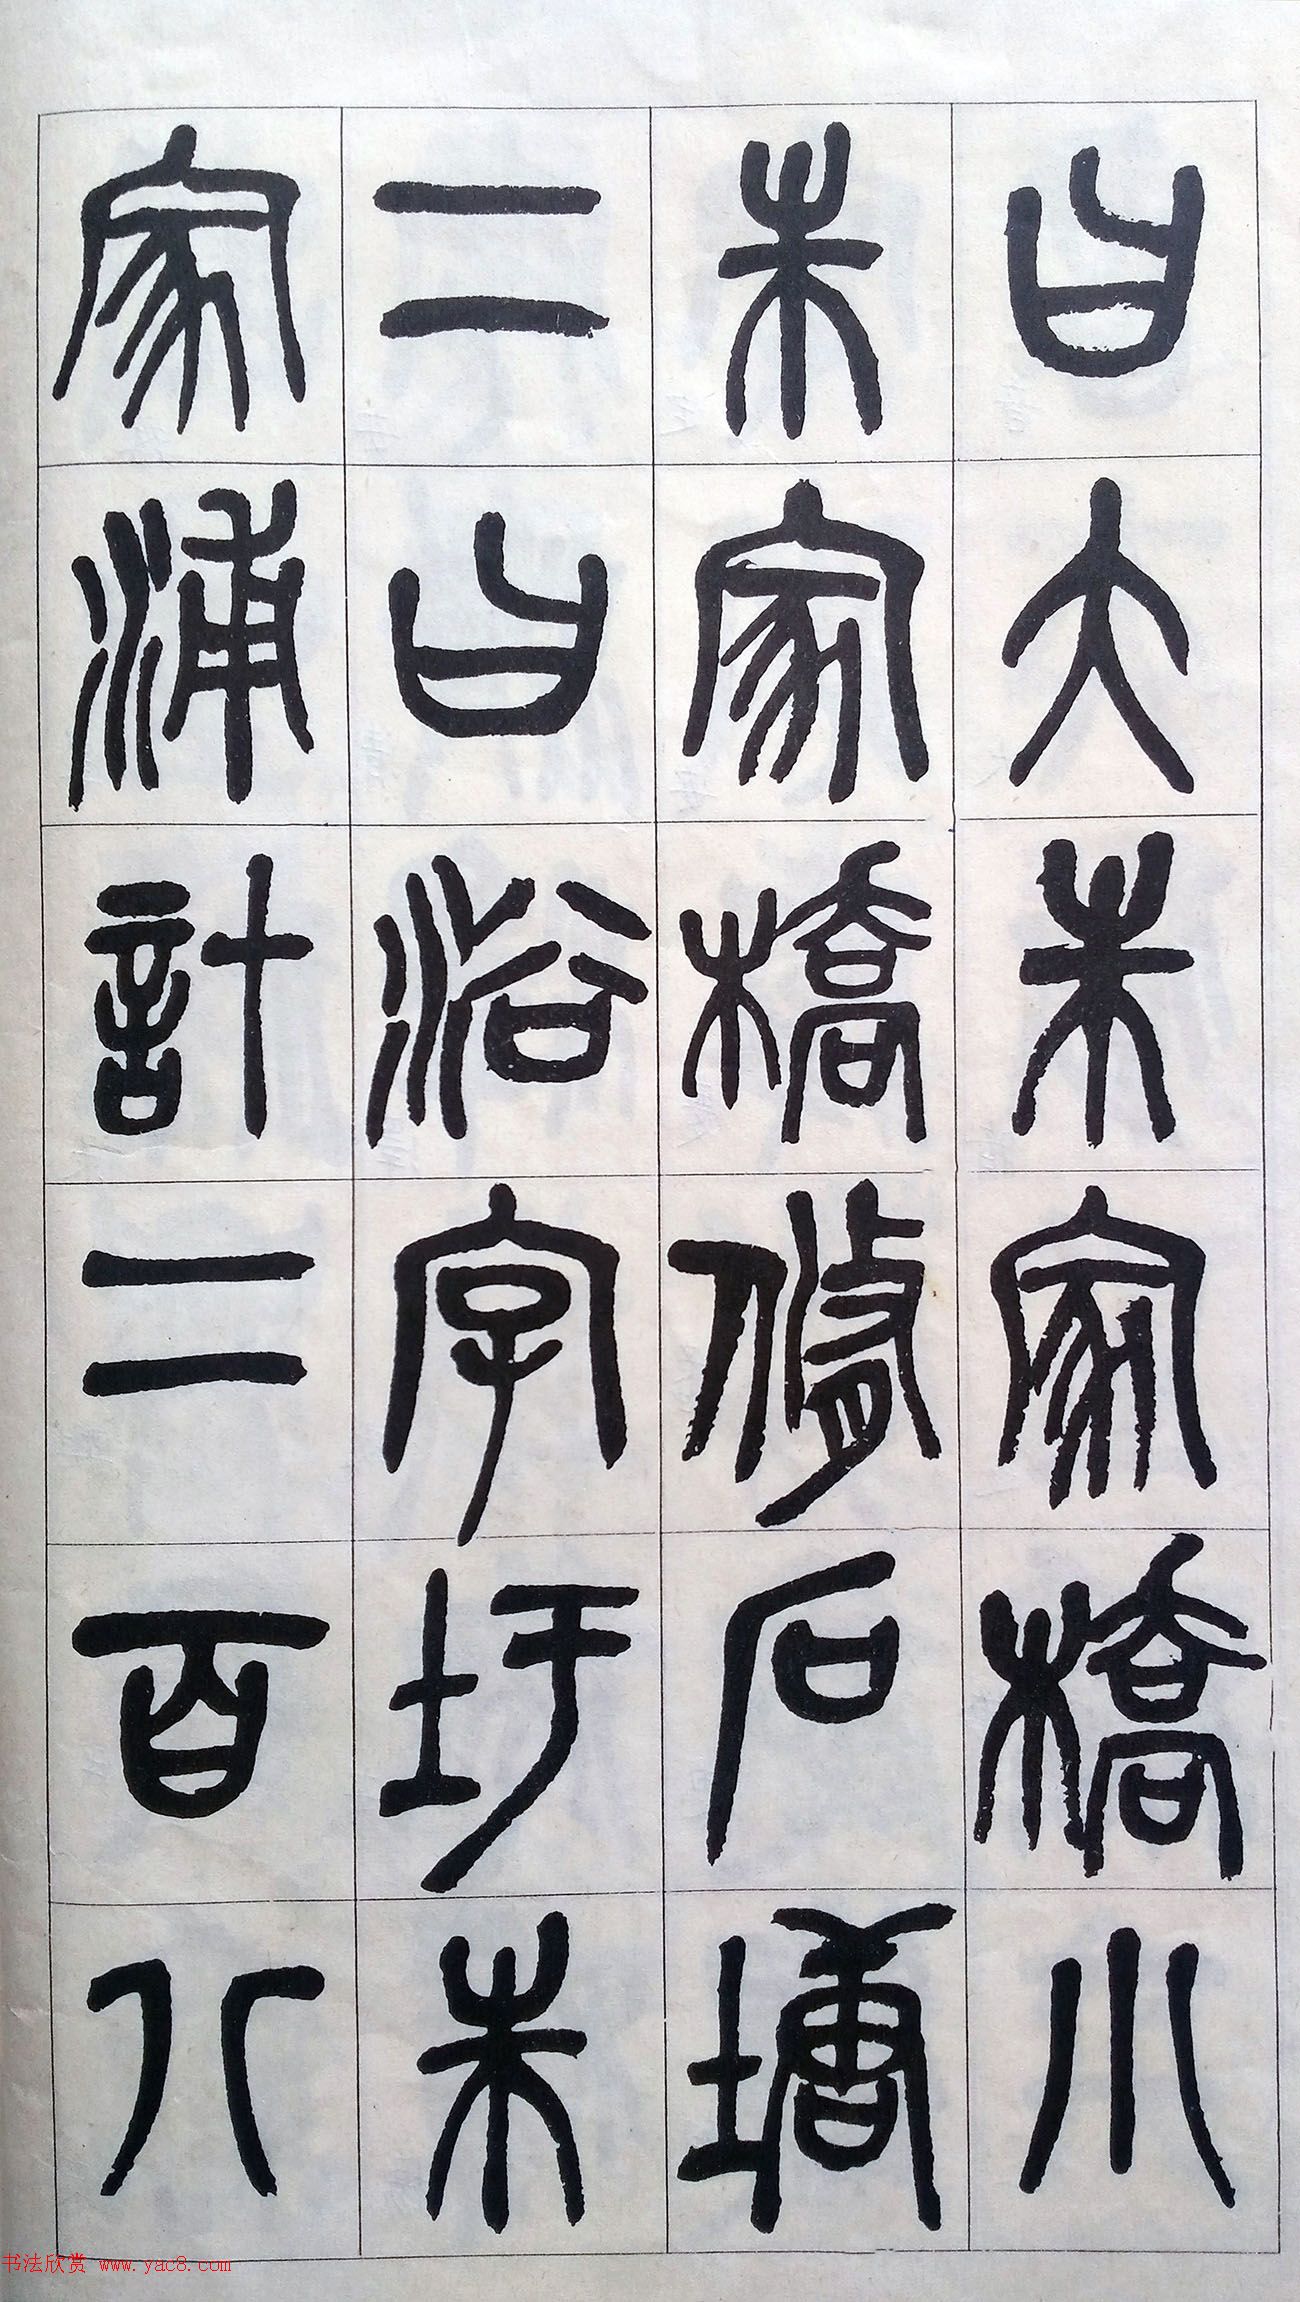 曰大朱家橋小
朱家橋修石塘
二曰浴字圩朱
家浦計二百八
书法欣赏 www.yac8.com